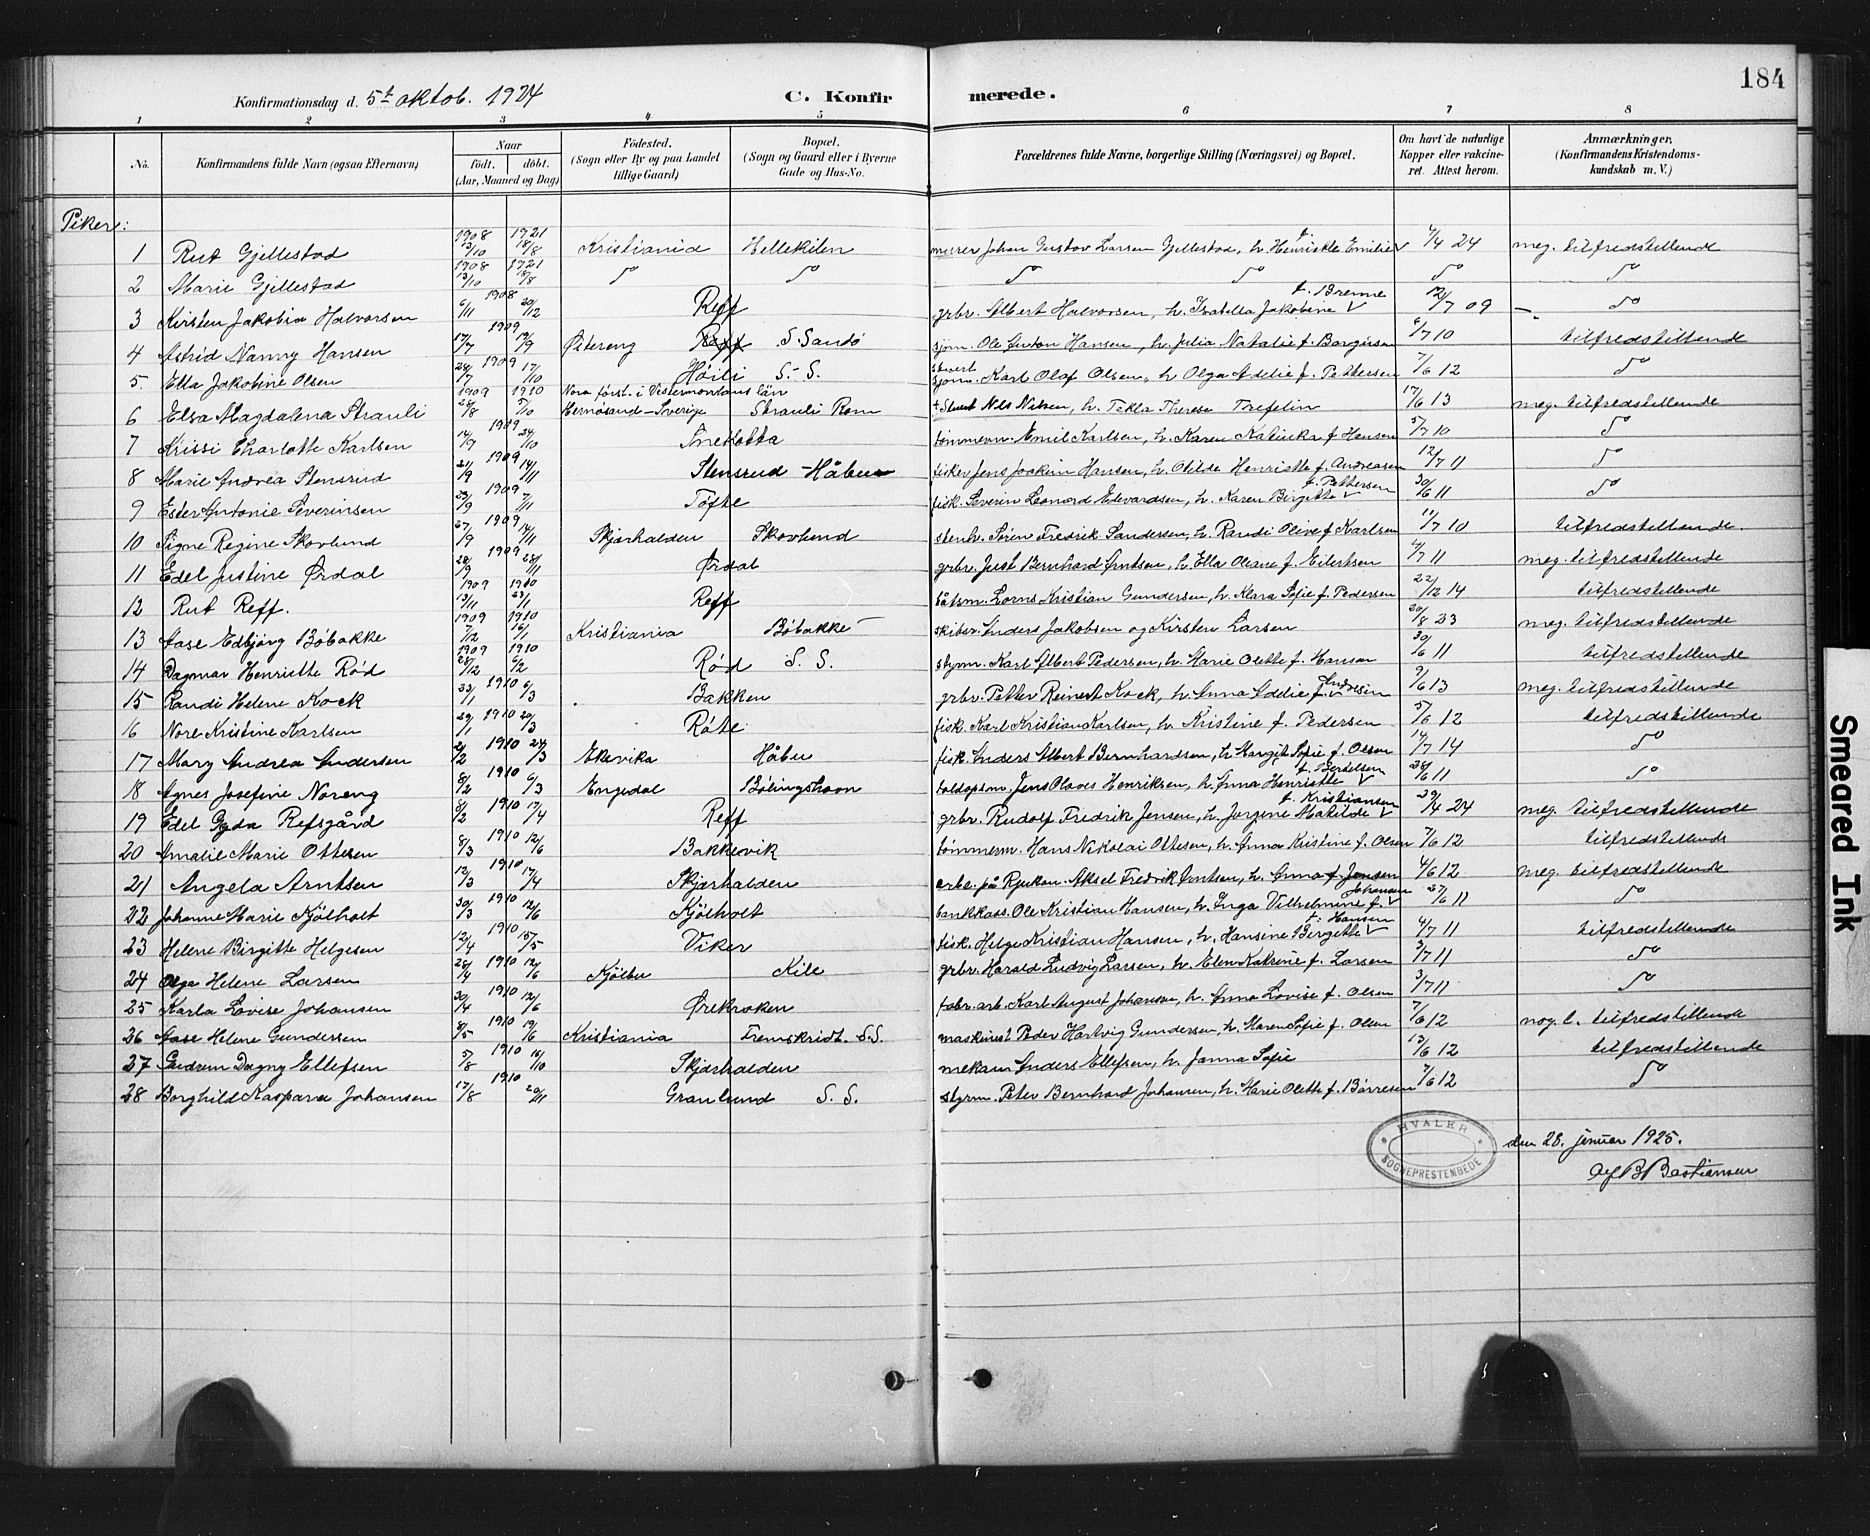 184
Konfirmationsdag d. 5t oktob. 1924 C. Konfirmerede.
1 2 3 4 5 6 7 8
No. Konfirmandens fulde Navn (ogsaa Efternavn) Naar født. døbt. (Aar, Maaned og Dag) Födested. (Sogn eller By og paa Landet tillige Gaard) Bopæl. (Sogn og Gaard eller i Byerne Gade og Hus-No. Forældrenes fulde Navne, borgerlige Stilling (Næringsvei) og Bopæl. Om havt de naturlige Kopper eller vakcineret. Attest herom. Anmærkninger, (Konfirmandens Kristendomskundskab m. V.)
Piker:
1 Rut Gjellestad 1908 13/10 1921 18/8 Kristiania Hellekilen murer Johan Gustav Larsen Gjellestad, h. Henriette Emilie f. 4/4 24 meg. tilfredstillende
2 Marie Gjellestad 1908 13/10 1921 18/8 do do do do do do
3 Kirsten Jakobia Halvorsen 6/11 1908 20/12 Reff grbr. Albert Halvorsen, h. Isabella Jakobine f. Brenne 12/7 09 - do
4 Astrid Nanny Hansen 17/7 1909 19/9 Østereng S. Sandö sjøm. Ole Anton Hansen, h. Julia Natalie f. Borgersen 6/7 10 tilfredstillende
5. Ella Jakobine Olsen 28/7 1909 17/10 Høili S. S. stuert sjøm. Karl Olaf Olsen, h. Olga Adelie f. Pettersen 7/6 12 do
6 Elsa Magdalena Strauli 1909 28/8 1910 5/10 Nora först. i Vesternorrlans län Hernösand - Sverige Strauli Rom f. Stuert Nils Nilsen, h. Tekla Therese Trefelin 17/6 13 meg. tilfredstillende
7 Krissi Charlotte Karlsen 14/9 1909 24/10 Snekotta tømmerm. Emil Karlsen, h. Karen Katinka f. Hansen 5/7 10 do
8 Marie Andrea Stensrud 21/9 1909 14/11 Stensrud - Håbu fisker Jens Joakim Hansen, h. Otilde Henriette f. Andreasen 12/7 11 do
9 Ester Antonie Severinsen 23/9 1909 7/11 Tøfte fisk. Severin Leonard Edvardsen, h. Karen Birgitte f. Pettersen 30/6 11 do
10 Signe Regine Skovlund 27/9 1909 14/11 Skjærhalden Skovlund stenh. Søren Fredrik Sandersen, h. Randi Olive f. Karlsen 11/7 10 tilfredstillende.
11 Edel Justine Ørdal 28/9 1909 28/11 Ørdal grbr. Just Bernhard Arntsen, h. Ella Oleane f. Eilertsen 4/7 11 meg. tilfredstillende
12 Rut Reff. 1909 13/11 1910 23/1 Reff båtsm. Lorns Kristian Gundersen, h. Klara Sofie f. Pedersen 22/12 14 tilfredstillende
13 Aase Edbjørg Böbakke 1909 7/12 1910 16/1 Kristiania Böbakke skiber. Anders Jakobsen og Kirsten Larsen 20/8 23 meg. tilfredstillende
14 Dagmar Henriette Rød 1909 28/12 1910 6/2 Rød S. S. styrm. Karl Albert Pedersen, h. Marie Olette f. Hansen 30/6 11 tilfredstillende
15 Randi Helene Kock 23/1 1910 6/3 Bakken grbr. Petter Reinert Kock, h. Anna Oddie f. Andresen 9/6 13 meg. tilfredstillende
16 Nore Kristine Karlsen 29/1 1910 20/3 Røte fisk. Karl Kristian Karlsen, h. Kristine f. Pedersen 5/6 12 tilfredstillende
17 Mary Andrea Andersen 2/2 1910 24/3 Ekevika Håbu fisk. Anders Albert Bernhardsen, h. Margit Sofie f. Olsen 14/7 14 do
18 Agnes Josefine Noreng 8/2 1910 6/3 Engedal Bölingshavn toldopsm. Jens Olaves Henriksen, h. Anna Henriette f. Bertelsen 28/6 11 do
19 Edel Gyda Refsgård 8/2 1910 17/4 Reff grbr. Rudolf Fredrik Jensen, h. Jørgine Matilde f. Kristiansen 29/4 24 meg. tilfredstillende
20 Amalie Marie Ottesen 8/3 1910 12/6 Bakkevik tömmerm. Hans Nikolai Ottesen, h. Anna Kristine f. Olsen 7/6 12 tilfredstillende
21 Angela Arntsen 12/3 1910 17/4 Skjærhalden arbe. på Rjukan Aksel Fredrik Arntsen, h. Anna f. Jensen 4/6 12 meg. tilfredstillende
22 Johanne Marie Kjölholt 30/3 1910 12/6 Kjölholt bankkass. Ole Kristian Hansen, h. Inga Vilhelmine f. Johansen 27/6 11 do
23 Helene Birgitte Helgesen 12/4 1910 15/5 Viker fisk. Helge Kristian Hansen, h. Hansine Bergette f. Hansen 4/7 11 tilfredstillende
24 Olga Helene Larsen 28/4 1910 12/6 Kjölbu Kile grbr. Harald Ludvig Larsen, h. Elen Katrine f. Larsen 3/7 11 do
25 Karla Lovise Johansen 30/4 1910 12/6 Ørekroken fabr. arb. Karl August Johansen, h. Anna Lovise f. Olsen 3/7 11 do
26 Aase Helene Gundersen 8/5 1910 19/6 Kristiania Fremskridt. S.S. maskinist Peder Hartvig Gundersen, h. Maren Sofie f. Olsen 7/6 12 nog. l. tilfredstillende
27 Gudrun Dagny Ellefsen 5/8 1910 16/10 Skjærhalden mekan. Anders Ellefsen, h. Janna Sofie 13/6 12 tilfredstillende
28 Borghild Kaspara Johansen 17/8 1910 20/11 Granlund S. S. styrm. Peter Bernhard Johansen, h. Marie Olette f. Børresen 7/6 12 do
HVALER SOGNEPRESTENBEDE
den 28. januar 1925.
Alf B Bastiansen
Smeared Ink